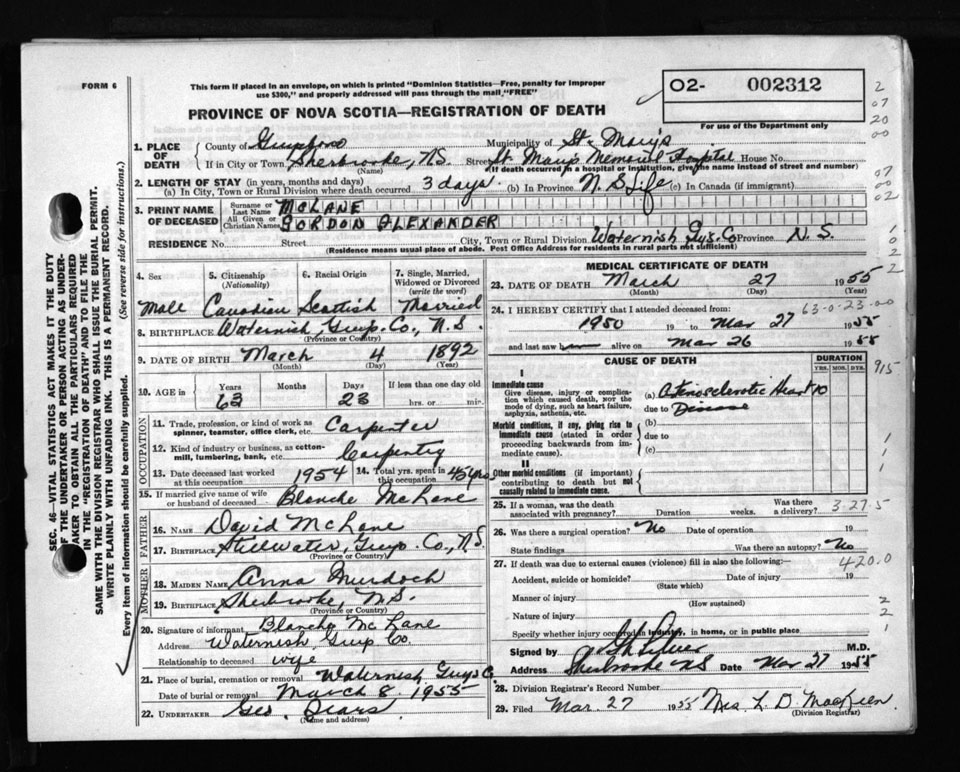 FORM 6
This form if placed in an envelope, on which is printed "Dominion Statistics—Free, penalty for improper
use $300," and properly addressed will pass through the mail, "FREE"
02- 002312
For use of the Department only
PROVINCE OF NOVA SCOTIA—REGISTRATION OF DEATH
1. PLACE OF DEATH
County of Municipality of St. Mary's
If in City or Town Sherbrooke, N.S. Street St. Mary's Memorial Hospital House No.
(Name) (If death occurred in a hospital or institution, give the name instead of street and number)
2. LENGTH OF STAY (in years, months and days)
(a) In City, Town or Rural Division where death occurred 3 days. (b) In Province N.S. Life (c) In Canada (if immigrant)
3. PRINT NAME OF DECEASED
Surname or Last Name McLANE
All Given or Christian Names GORDON ALEXANDER
RESIDENCE No. Street City, Town or Rural Division Waternish Guys. Co Province N.S.
(Residence means usual place of abode. Post Office Address for residents in rural parts not sufficient)
4. Sex 5. Citizenship (Nationality) 6. Racial Origin 7. Single, Married, Widowed or Divorced (write the word)
Male Canadian Scottish Married
8. BIRTHPLACE Waternish, Guys. Co., N.S.
(Province or Country)
9. DATE OF BIRTH March 4 1892
(Month) (Day) (Year)
10. AGE in Years Months Days If less than one day old
63 23 hrs. or min.
OCCUPATION
11. Trade, profession, or kind of work as spinner, teamster, office clerk, etc. Carpenter
12. Kind of industry or business, as cotton-mill, lumbering, bank, etc. Carpentry
13. Date deceased last worked at this occupation 1954 14. Total yrs. spent in this occupation 45 yrs
15. If married give name of wife or husband of deceased Blanche McLane
FATHER
16. Name David McLane
17. Birthplace Stillwater, Guys. Co., N.S.
(Province or Country)
MOTHER
18. MAIDEN NAME Anna Murdoch
19. BIRTHPLACE Sherbrooke, N.S.
(Province or Country)
20. Signature of informant Blanche McLane
Address Waternish, Guys Co.
Relationship to deceased wife
21. Place of burial, cremation or removal Waternish Guys C.
Date of burial or removal March 8, 1955
22. UNDERTAKER Geo.
(Name and address)
MEDICAL CERTIFICATE OF DEATH
23. DATE OF DEATH March 27 1955
(Month) (Day) (Year)
24. I HEREBY CERTIFY that I attended deceased from: 63-0-23-00
1950 19 to Mar 27 1955
and last saw him alive on Mar 26 1955
CAUSE OF DEATH DURATION
YRS. MOS. DYS.
I
Immediate cause
Give disease, injury or complication which caused death, NOT the mode of dying, such as heart failure, asphyxia, asthenia, etc.
(a) Arteriosclerotic Heart 10
due to Disease
Morbid conditions, if any, giving rise to immediate cause (stated in order proceeding backwards from immediate cause).
(b)
due to
(c)
II
Other morbid conditions (if important) contributing to death but not causally related to immediate cause.
25. If a woman, was the death associated with pregnancy? Duration weeks. Was there a delivery? 3-27-5
26. Was there a surgical operation? No Date of operation 19
State findings Was there an autopsy? No
27. If death was due to external causes (violence) fill in also the following:— 420.0
Accident, suicide or homicide? Date of injury 19
(State which)
Manner of injury
(How sustained)
Nature of injury
Specify whether injury occurred in industry, in home, or in public place
Signed by M.D.
Address Sherbrooke NS Date Mar 27 1955
28. Division Registrar's Record Number
29. Filed Mar. 27 1955 Mrs. L. D. MacKeen
(Division Registrar)
SEC. 46—VITAL STATISTICS ACT MAKES IT THE DUTY
OF THE UNDERTAKER OR PERSON ACTING AS UNDER-
TAKER TO OBTAIN ALL THE PARTICULARS REQUIRED
IN THE "REGISTRATION OF DEATH" AND TO FILE THE
SAME WITH THE DIVISION REGISTRAR WHO SHALL ISSUE THE BURIAL PERMIT.
WRITE PLAINLY WITH UNFADING INK. THIS IS A PERMANENT RECORD.
Every item of information should be carefully supplied. (See reverse side for instructions.)
2
07
20
00
07
00
02
1
0
2
2
915
1
1
1
2
2
1